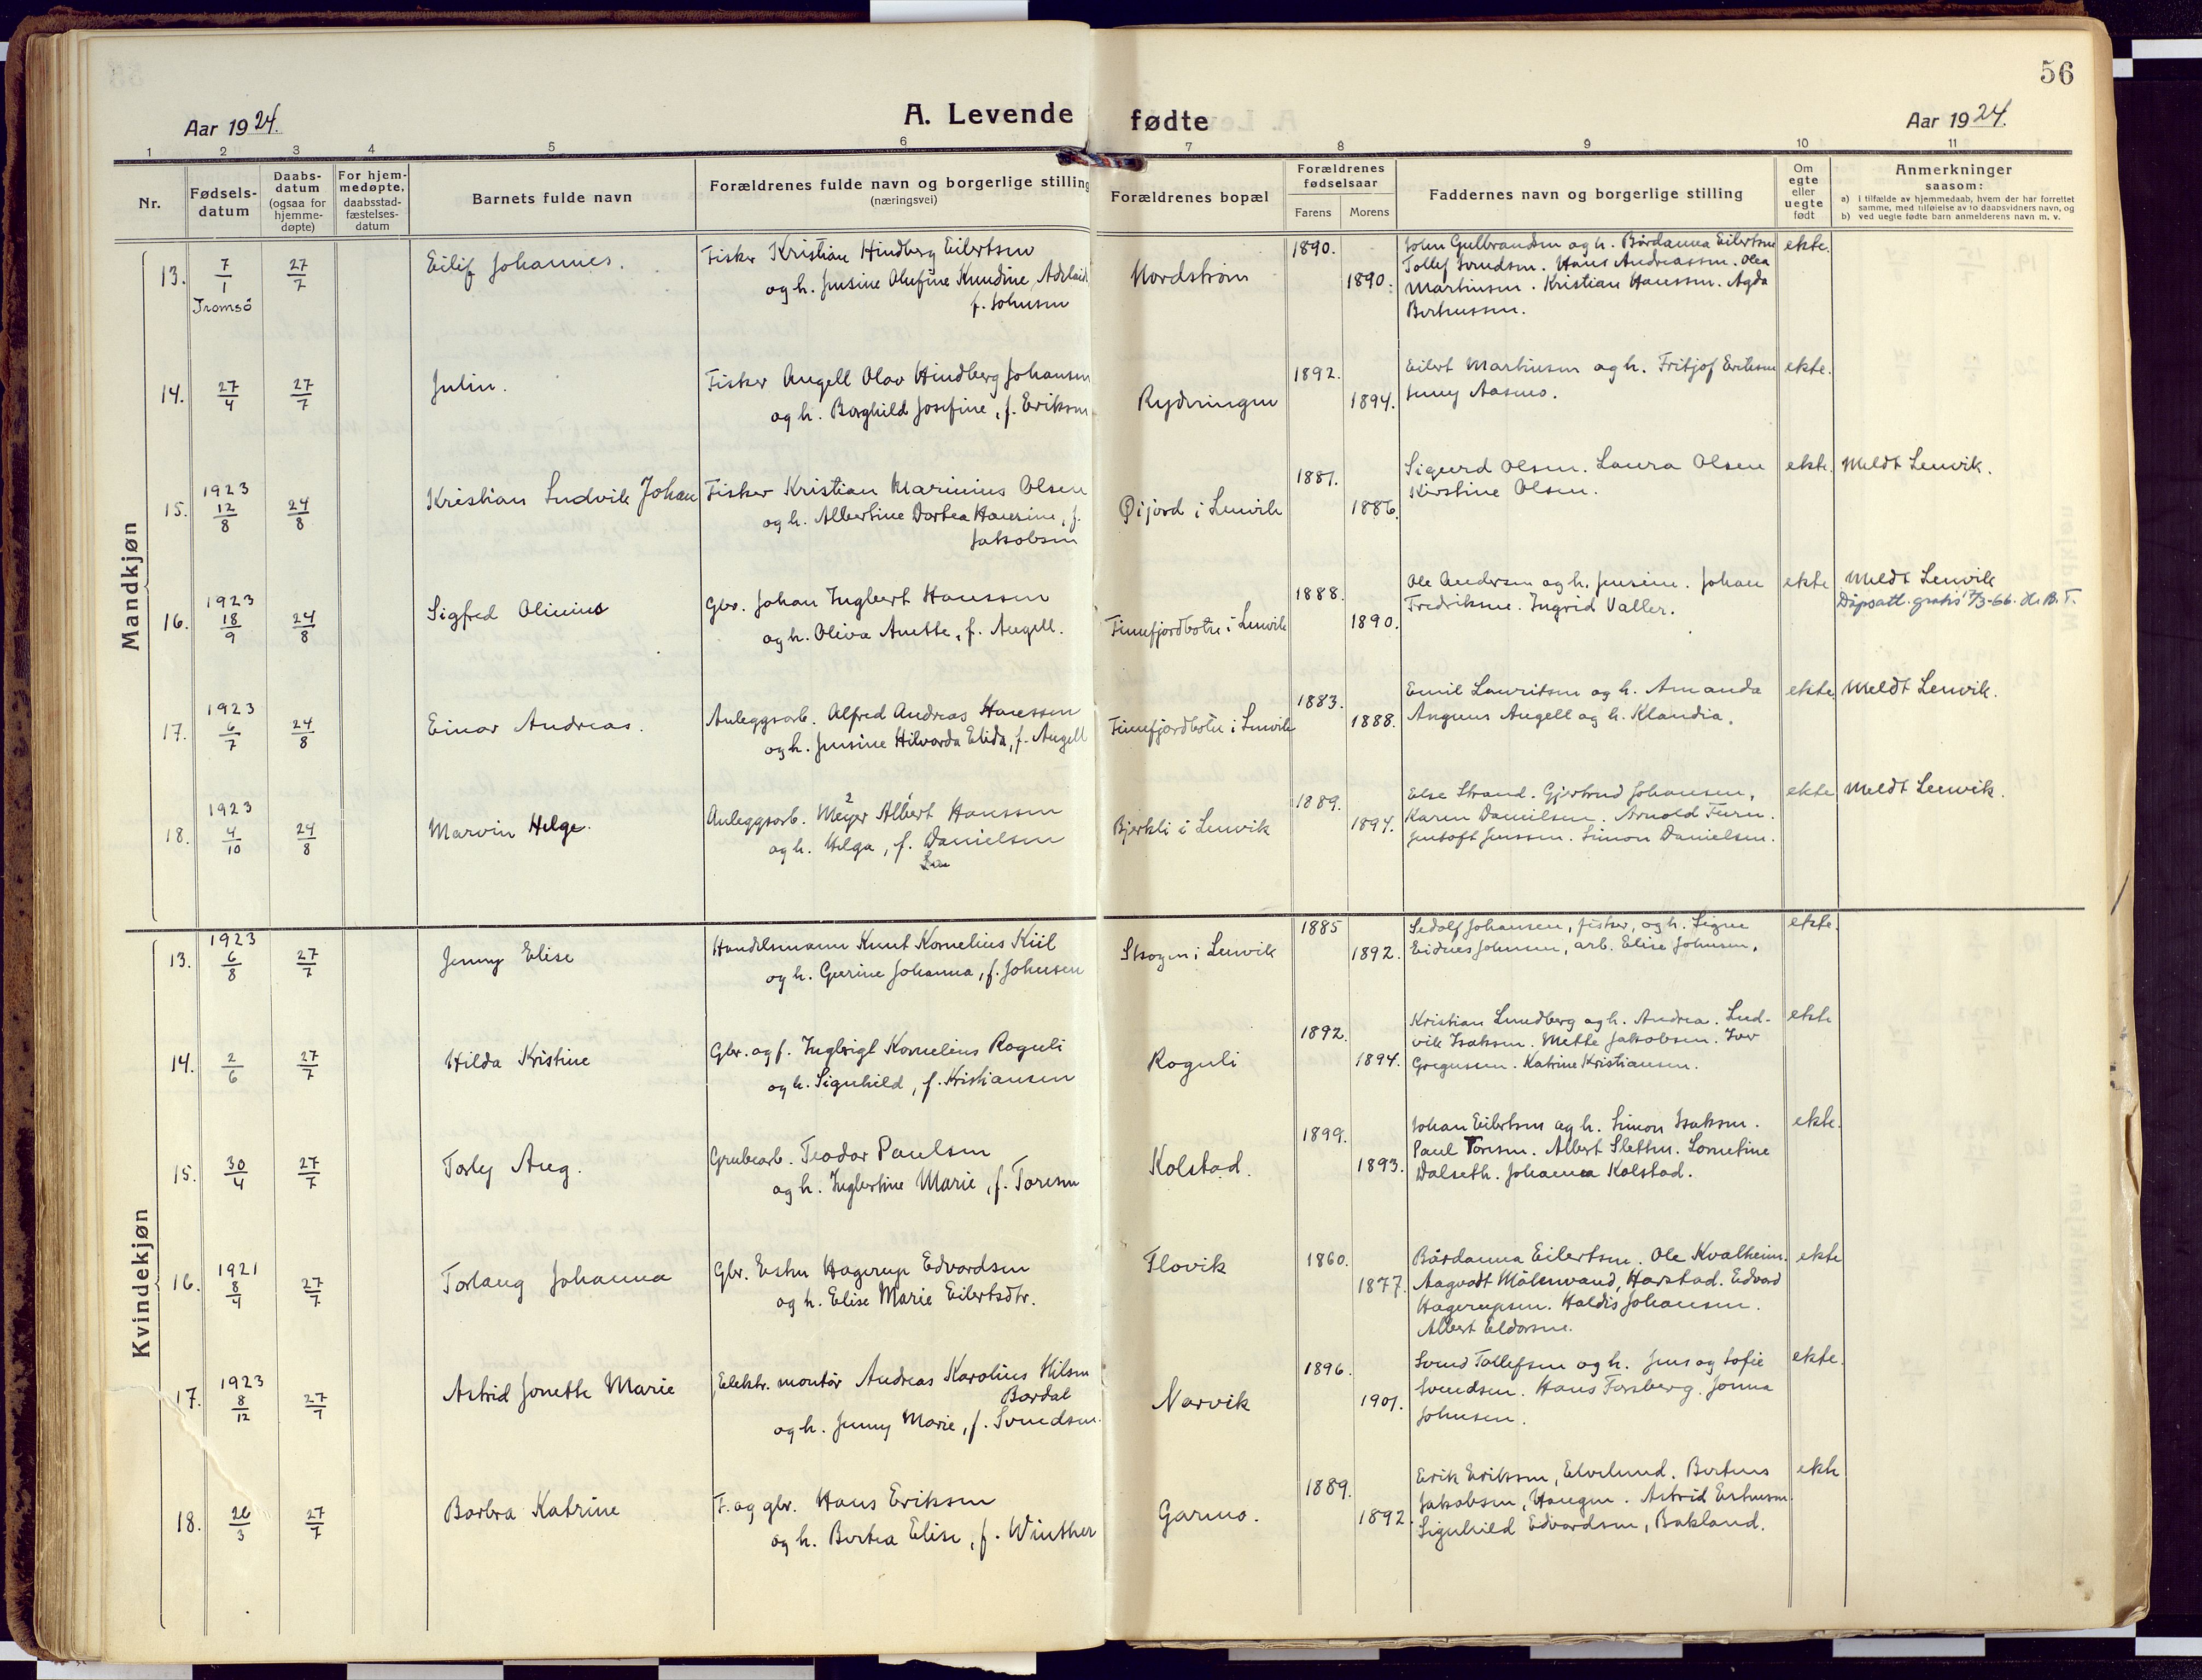 56
A. Levende fødte
Aar 1924.
Aar 1924.
1 2 3 4 5 6 7 8 9 10 11
Nr.
Fødsels-
datum
Daabs-
datum
(ogsaa for
hjemme-
døpte)
For hjem-
medøpte,
daabsstad-
fæstelses-
datum
Barnets fulde navn
Forældrenes fulde navn og borgerlige stilling
(næringsvei)
Forældrenes bopæl
Forældrenes
fødselsaar
Farens Morens
Faddernes navn og borgerlige stilling
Om
egte
eller
uegte
født
Anmerkninger
saasom:
a) i tilfælde av hjemmedaab, hvem der har forrettet
samme, med tilføielse av to daabsvidners navn, og
b) ved uegte fødte barn anmelderens navn m. v.
Mandkjøn
13. 7/1 Tromsö 27/7
Eilif Johannes.
Fisker Kristian Hindberg Eilertsen
og h. Jensine Olufine Knudine Adelaid
f. Johnsen
Nordstrøm
1890. 1890.
John Gulbrandsen og h. Bårdanna Eilertsen
Tollef Svendsen. Hans Andreassen. Olea
Martinsen. Kristian Hanssen. Agda
Berthussen.
ekte.
14. 27/4 27/7
Julin.
Fisker Angell Olav Hindberg Johansen
og h. Borghild Josefine, f. Eriksen
Rydningen
1892. 1894.
Eilert Martinsen og h. Fritjof Eriksen
Jenny Aasmo.
ekte.
15. 1923 12/8 24/8
Kristian Ludvik Johan
Fisker Kristian Marinius Olsen
og h. Albertine Dortea Hansine, f.
Jakobsen
Øijord i Lenvik
1881. 1886.
Sigurd Olsen. Laura Olsen
Kirstine Olsen.
ekte. Meldt Lenvik.
16. 1923 18/9 24/8
Sigfred Olinius
Gbr. Johan Ingbert Hanssen
og h. Oliva Anette, f. Angell.
Finnfjordbotn i Lenvik
1888. 1890.
Ole Andersen og h. Jensine. Johan
Fredriksen. Ingrid Valler.
ekte Meldt Lenvik
Dåpsatt. gratis 17/3-66. H. B. T.
17. 1923 6/7 24/8
Einar Andreas.
Anleggsarb. Alfred Andreas Hanssen
og h. Jensine Hilvarda Elida, f. Angell
Finnfjordbotn i Lenvik
1883. 1888.
Emil Lauritsen og h. Amanda
Angell og h. Klaudia.
ekte Meldt Lenvik.
18. 1923 4/10 24/8
Marvin Helge.
Anleggsarb. Meyer Albert Hanssen
og h. Helga, f. Danielsen
Bjerkli i Lenvik
1889. 1894.
Else Strand. Gjertrud Johansen,
Karen Danielsen. Arnold
Jentoft Jenssen. Simon Danielsen.
ekte Meldt Lenvik.
Kvindekjøn
13. 1923 6/8 27/7
Jenny Elise
Handelsmann Knut Kornelius Kiil
og h. Gurine Johanna, f. Johnsen
Skogen i Lenvik
1885 1892.
Sedolf Johansen, fisker, og h. Signe
Eidnes Johnsen, arb. Elise Johnsen.
ekte.
14. 2/6 27/7
Hilda Kristine
Gbr. og f. Ingbrigt Kornelius Roguli
og h. Signhild, f. Kristiansen
Roguli
1892. 1894.
Kristian Lundberg og h. Andrea. Lud-
vik Isaksen. Mette Jakobsen. Ivar
Gregusen. Katrine Kristiansen.
ekte
15. 30/4 27/7
Torly Aug.
Grubearb. Teodor Paulsen
og h. Ingbertine Marie, f. Toresen
Kolstad.
1899. 1893.
Johan Eilertsen og h. Simon Isaksen.
Paul Toresen. Albert Sletten. Lornetine
Dalseth. Johanna Kolstad.
ekte.
16. 1921 8/4 27/7
Torlaug Johanna
Gbr. Esten Hagerup Edvardsen
og h. Elise Marie Eilertsdtr.
Flovik
1860. 1877.
Bårdanna Eilertsen. Ole Kvalheim.
Aagvadt Målenvand, Harstad. Edvard
Hagerupsen. Haldis Johansen.
Albert Eldorsen.
ekte
17. 1923 8/12 27/7
Astrid Jonette Marie
Elektr. montör Andreas Karolius Nilsen
Bardal
og h. Jenny Marie, f. Svendsen.
Narvik
1896. 1901.
Svend Tollefsen og h. Jens og Sofie
Svendsen. Hans Forsberg. Jonna
Johnsen.
ekte.
18. 26/3 27/7
Borbra Katrine
F. og gbr. Hans Eriksen
og h. Bertea Elise, f. Winther
Garmo.
1889. 1892.
Erik Eriksen, Elvelund. Berteus
Jakobsen, Haugen. Astrid Estensen.
Signhild Edvardsen, Bakland.
ekte